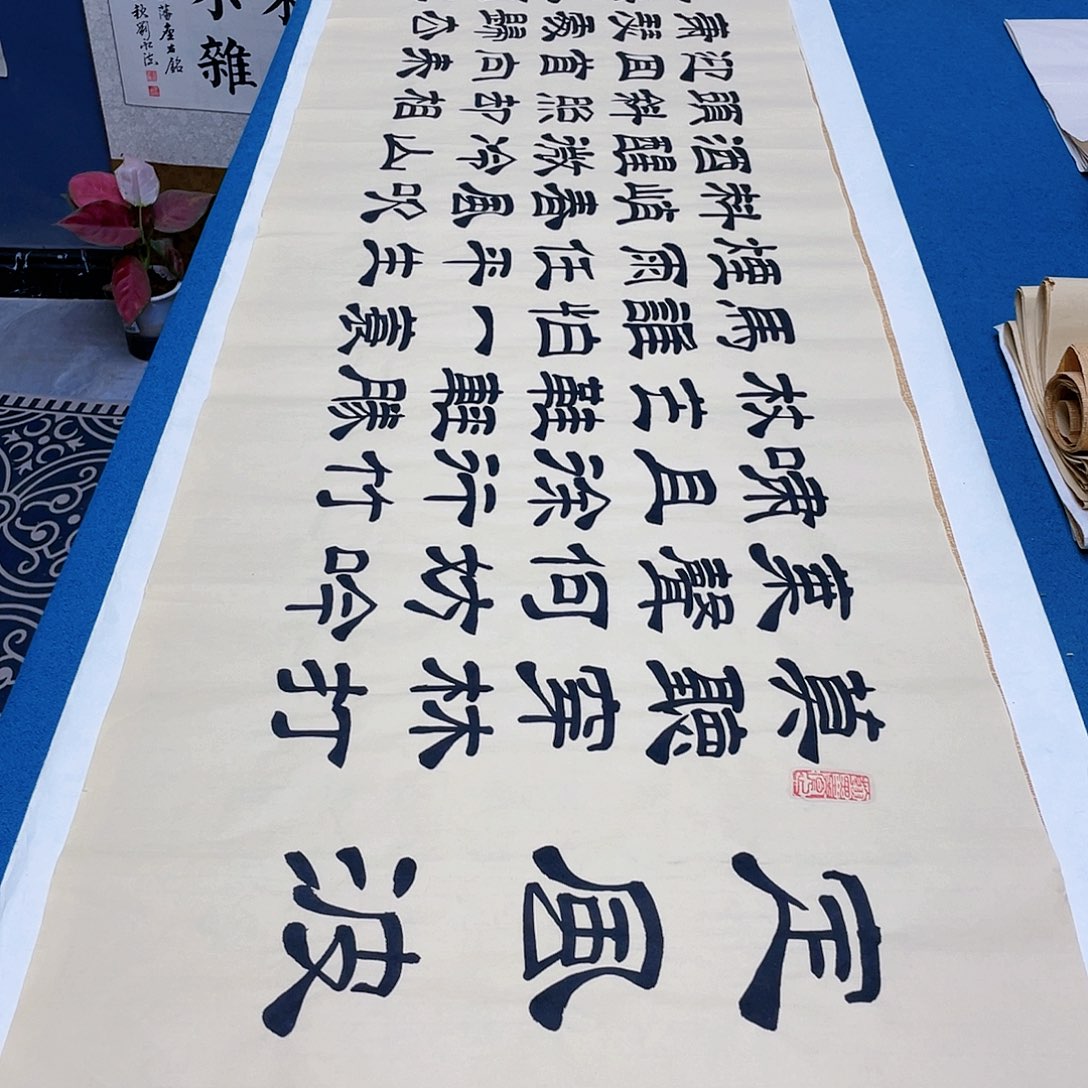 定風波
莫聽穿林打
葉聲何妨吟
嘯且徐行竹
杖芒鞋輕勝
馬誰怕一蓑
煙雨任平生
料峭春風吹
酒醒微冷山
頭斜照卻相
迎回首向來
蕭瑟處歸去
雜